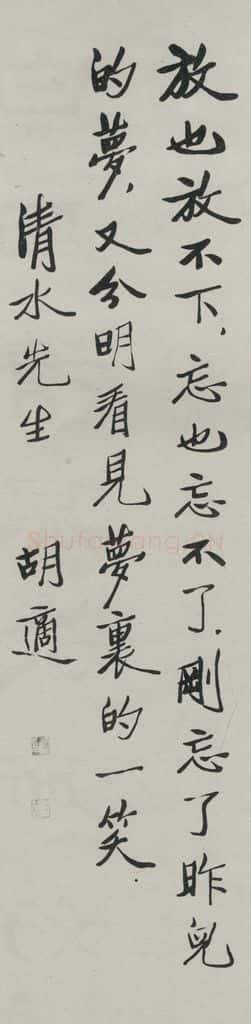 放也放不下，忘也忘不了，剛忘了昨兒
的夢，又分明看見夢裏的一笑．
清水先生 胡適